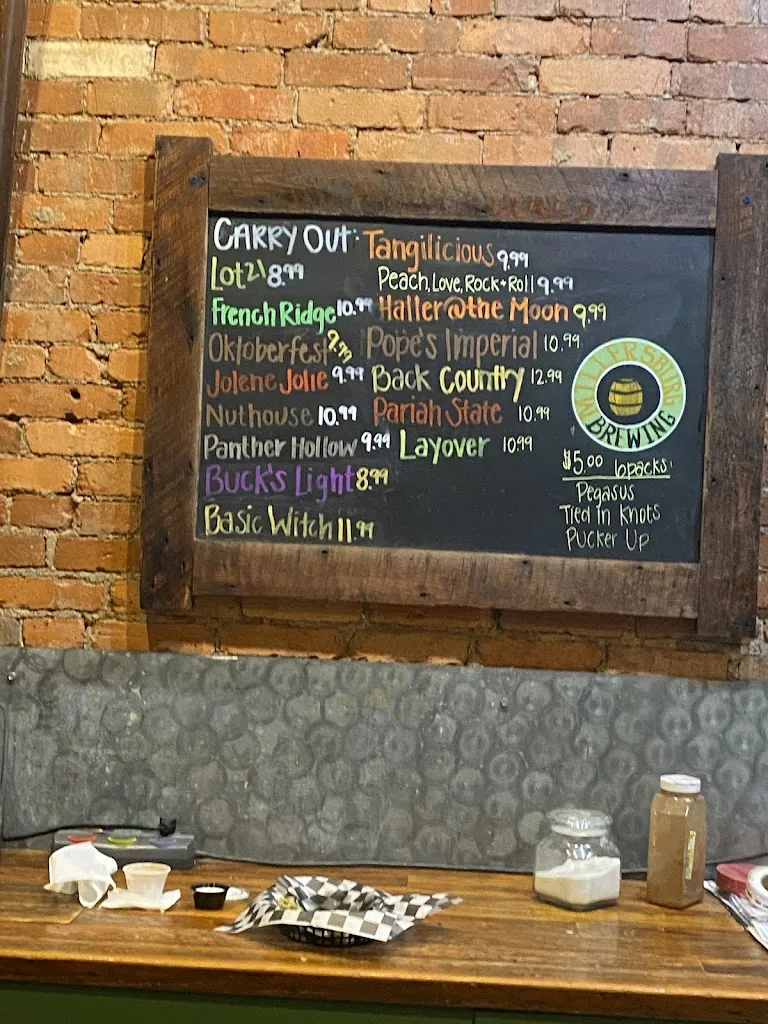 CARRY OUT:
Lot 21 8.99
French Ridge 10.99
Oktoberfest 9.99
Jolene Jolie 9.99
Nuthouse 10.99
Panther Hollow 9.99
Buck's Light 8.99
Basic Witch 11.99
Tangilicious 9.99
Peach, Love, Rock+Roll 9.99
Haller@the Moon 9.99
Pope's Imperial 10.99
Back Country 12.99
Pariah State 10.99
Layover 10.99
MILLERSBURG
BREWING
$5.00 6packs:
Pegasus
Tied in Knots
Pucker Up